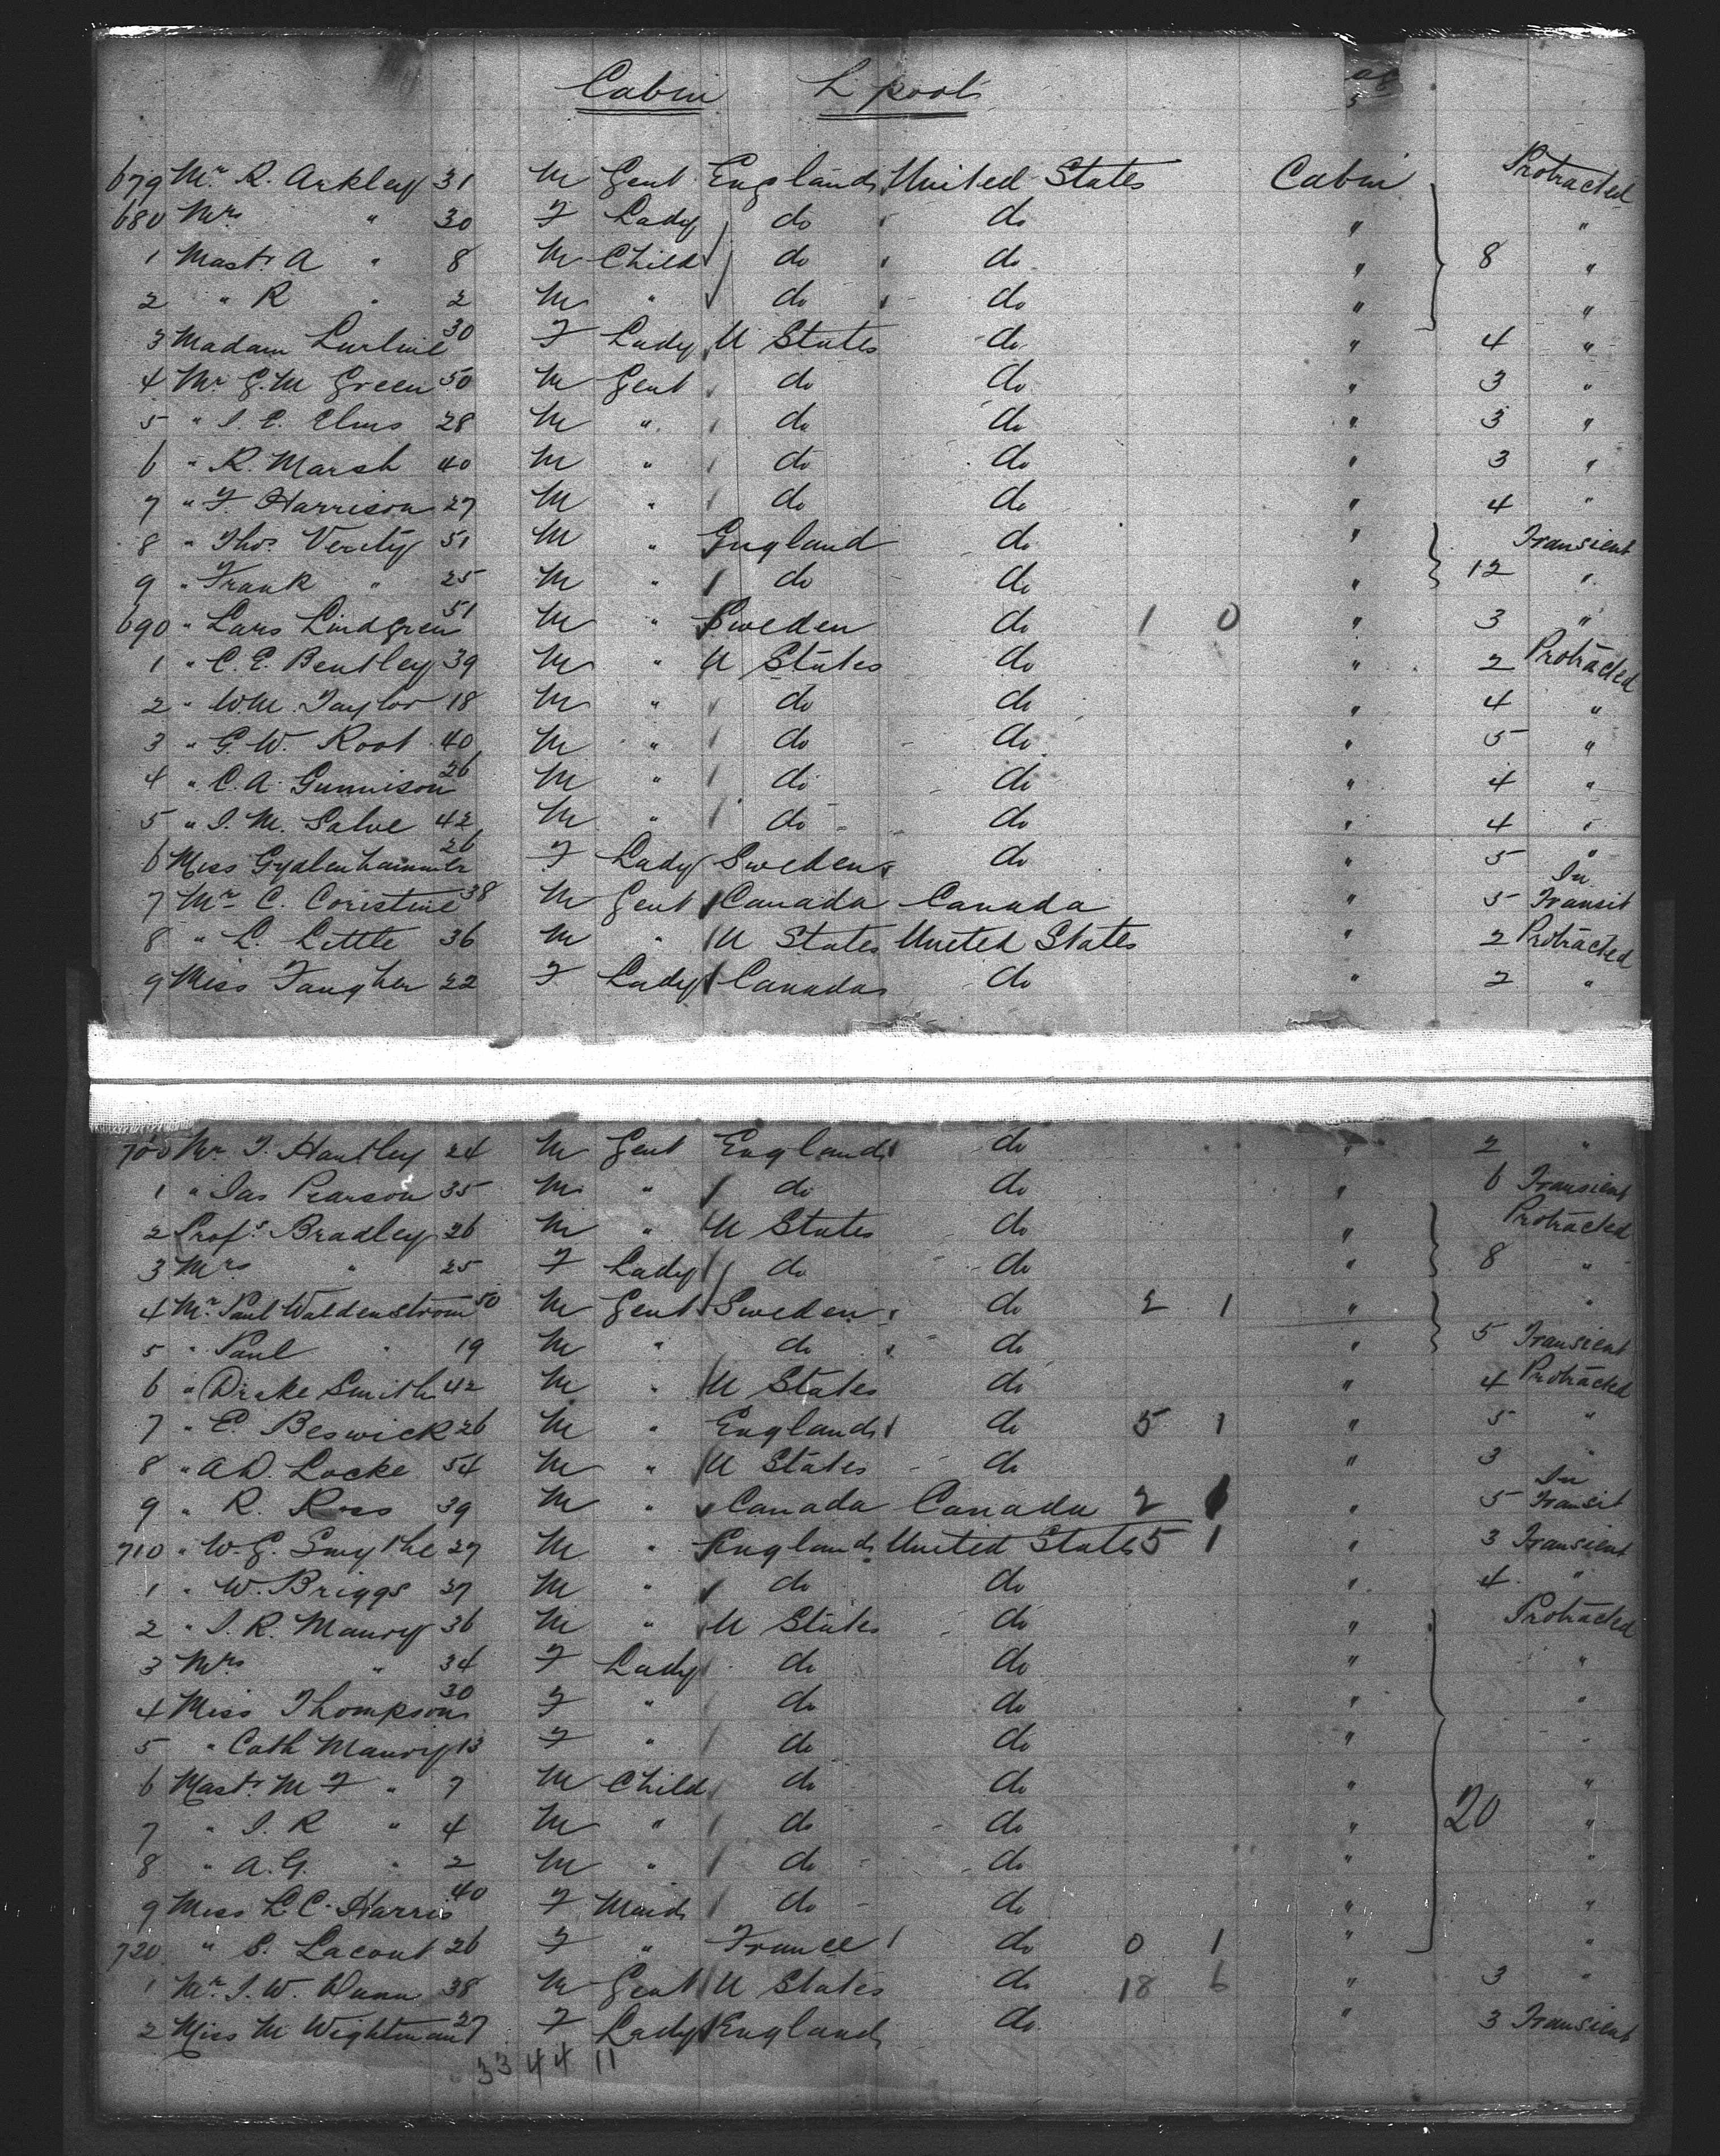 Cabin L'pool
679 Mr. R. Arkley 31 M Gent England United States Cabin Protracted
680 Mrs " 30 F Lady do do " "
1 Mastr. A " 8 M Child do do " 8 "
2 " R " 2 M " do do " "
3 Madam Lurline 30 F Lady U States do " 4 "
4 Mr G. M Green 50 M Gent do do " 3 "
5 " I. E. Elms 28 M " do do " 3 "
6 " R. Marsh 40 M " do do " 3 "
7 " F. Harrison 27 M " do do " 4 "
8 " Thos. Verity 51 M " England do " Transient
9 " Frank " 25 M " do do " 12 "
690 " Lars Lindgren 51 M " Sweden do 1 0 " 3 "
1 " C. E. Bentley 39 M " U States do " 2 Protracted
2 " W. M. Taylor 18 M " do do " 4 "
3 " G. W. Root 40 M " do do " 5 "
4 " C. A. Gunnison 26 M " do do " 4 "
5 " I. M. Salve 42 M " do do " 4 "
6 Miss 26 F Lady Sweden do " 5 "
7 Mr. C. Coristine 38 M Gent Canada Canada " 5 In Transit
8 " L. Little 36 M " U States United States " 2 Protracted
9 Miss Faugher 22 F Lady Canada do " 2 "
700 Mr T. Hantley 24 M Gent England do " 2 "
1 " Jas Pearson 35 M " do do " 6 Transient
2 Profr. Bradley 26 M " U States do " Protracted
3 Mrs " 25 F Lady do do " 8 "
4 Mr. Paul Waldenstrom 50 M Gent Sweden do 2 1 " "
5 " Paul " 19 M " do do " 5 Transient
6 " Drake Smith 42 M " U States do " 4 Protracted
7 " E. Beswick 26 M " England do 5 1 " 5 "
8 " A. D. Locke 54 M " U States do " 3 "
9 " R. Ross 39 M " Canada Canada 2 1 " 5 In Transit
710 " W. G. Smythe 27 M " England United States 5 1 " 3 Transient
1 " W. Briggs 37 M " do do " 4 "
2 " I. R. Maury 36 M " U States do " Protracted
3 Mrs " 34 F Lady do do " "
4 Miss Thompson 30 F " do do " "
5 " Cath Maury 13 F " do do " "
6 Mastr. M F " 7 M Child do do " "
7 " I. R " 4 M " do do " 20 "
8 " A. G. " 2 M " do do " "
9 Miss L. C. Harris 40 F Maid do do " "
720 " S. Lacout 26 F " France do 0 1 " "
1 Mr. I. W. Dunn 38 M Gent U States do 18 6 " 3 "
2 Miss M Wightman 27 F Lady England do " 3 Transient
33 44 11